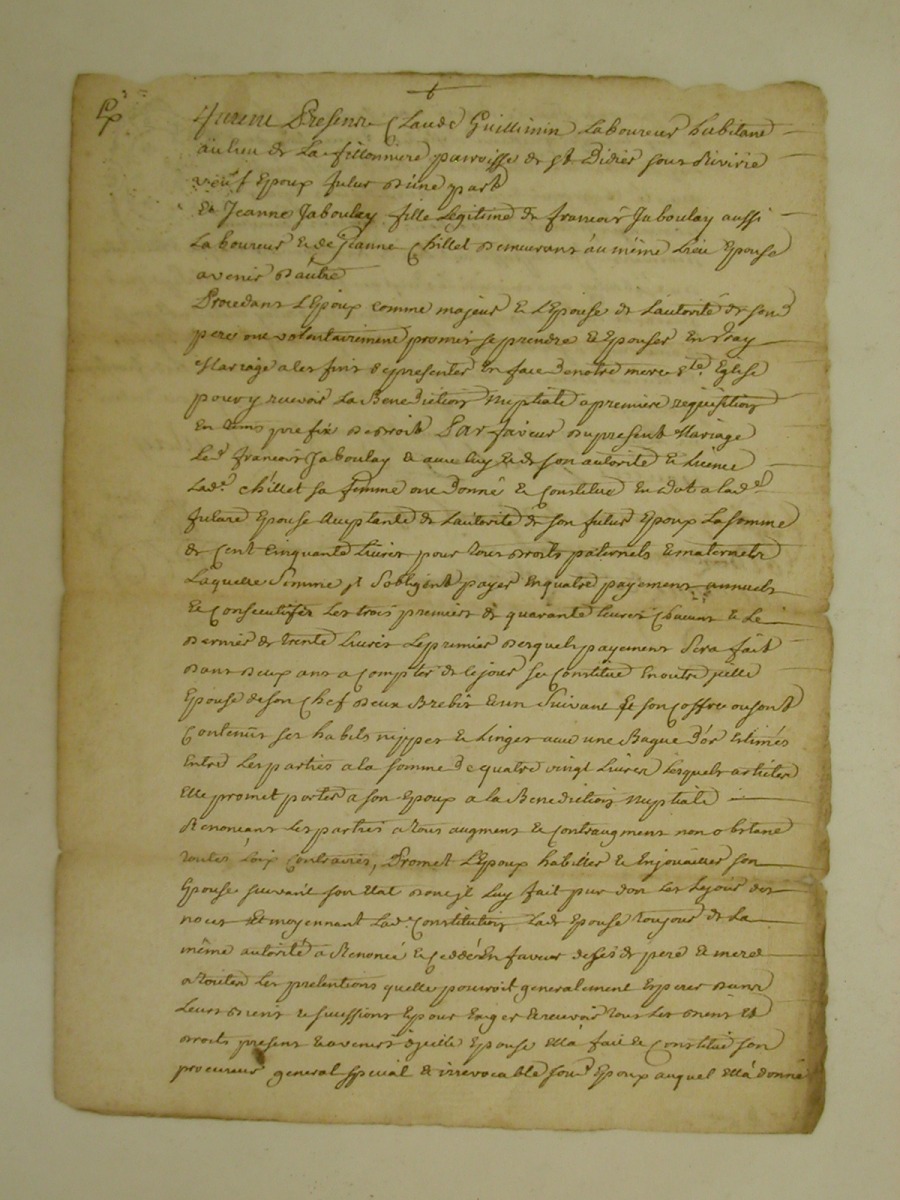 Furent Presens Claude Guillimin Laboureur habitant
au lieu de La fillonniere parroisse de St Didier sous Rivirie
veuf Epoux futur d'une part
Et Jeanne Jaboulay fille Legitime de francois Jaboulay aussi
Laboureur & de Jeanne Chillet demeurans au même Lieu Epouse
avenir d'autre
Procedans L'Epoux comme majeur & L'Epouse de L'autorité de son d
pere ont volontairement promis se prendre & Epouser En vray
Mariage a les fins se presenter En face de notre mere Ste Eglise
pour y recevoir La Benediction Nuptiale a premiere requisition
En tems prefix de droit Par faveur du present Mariage
Led francois Jaboulay & avec luy & de son autorité & Licence
Lade chillet sa femme ont donné & Constitué En dot a lade
future Epouse acceptante de L'autorité de son futur Epoux La somme
de Cent Cinquante Livres pour tous droits paternels & maternels
Laquelle Somme js s'obligent payer En quatre payemens annuels
& Consecutifs Les trois premiers de quarante Livres Chacun & Le
dernier de trente Livres Le premier desquels payemens Sera fait
dans deux ans a Compter de ce jour se Constitue En outre jcelle
Epouse de son Chef deux Brebis & un Suivant & son Coffre ou sont
Contenus ses habits nippes & Linges avec une Bague d'or Estimés
Entre Les parties a la somme de quatre vingt Livres Lesquels articles
Elle promet porter a son Epoux a la Benediction Nuptiale
Renonceans Les parties a tous augment & Contraugment non obstant
toutes Loix Contraires, Promet L'Epoux habiller & Enjoualler son
Epouse suivant son Etat dont jl Luy fait pur don Les Le jour des
noces Et moyennant Lad. Constitution Lade Epouse toujours de La
même autorité a Renoncé & Ceddé En faveur de ses d pere & mere
a toutes Les pretentions quelle pouvoit generalement Esperer dans
Leurs biens & successions Epour Exiger & recevoir tous Les biens Et
droits presens & avenirs d'jcelle Epouse Ella fait & Constitué son
procureur general special & irrevocable son d Epoux auquel Ella donné